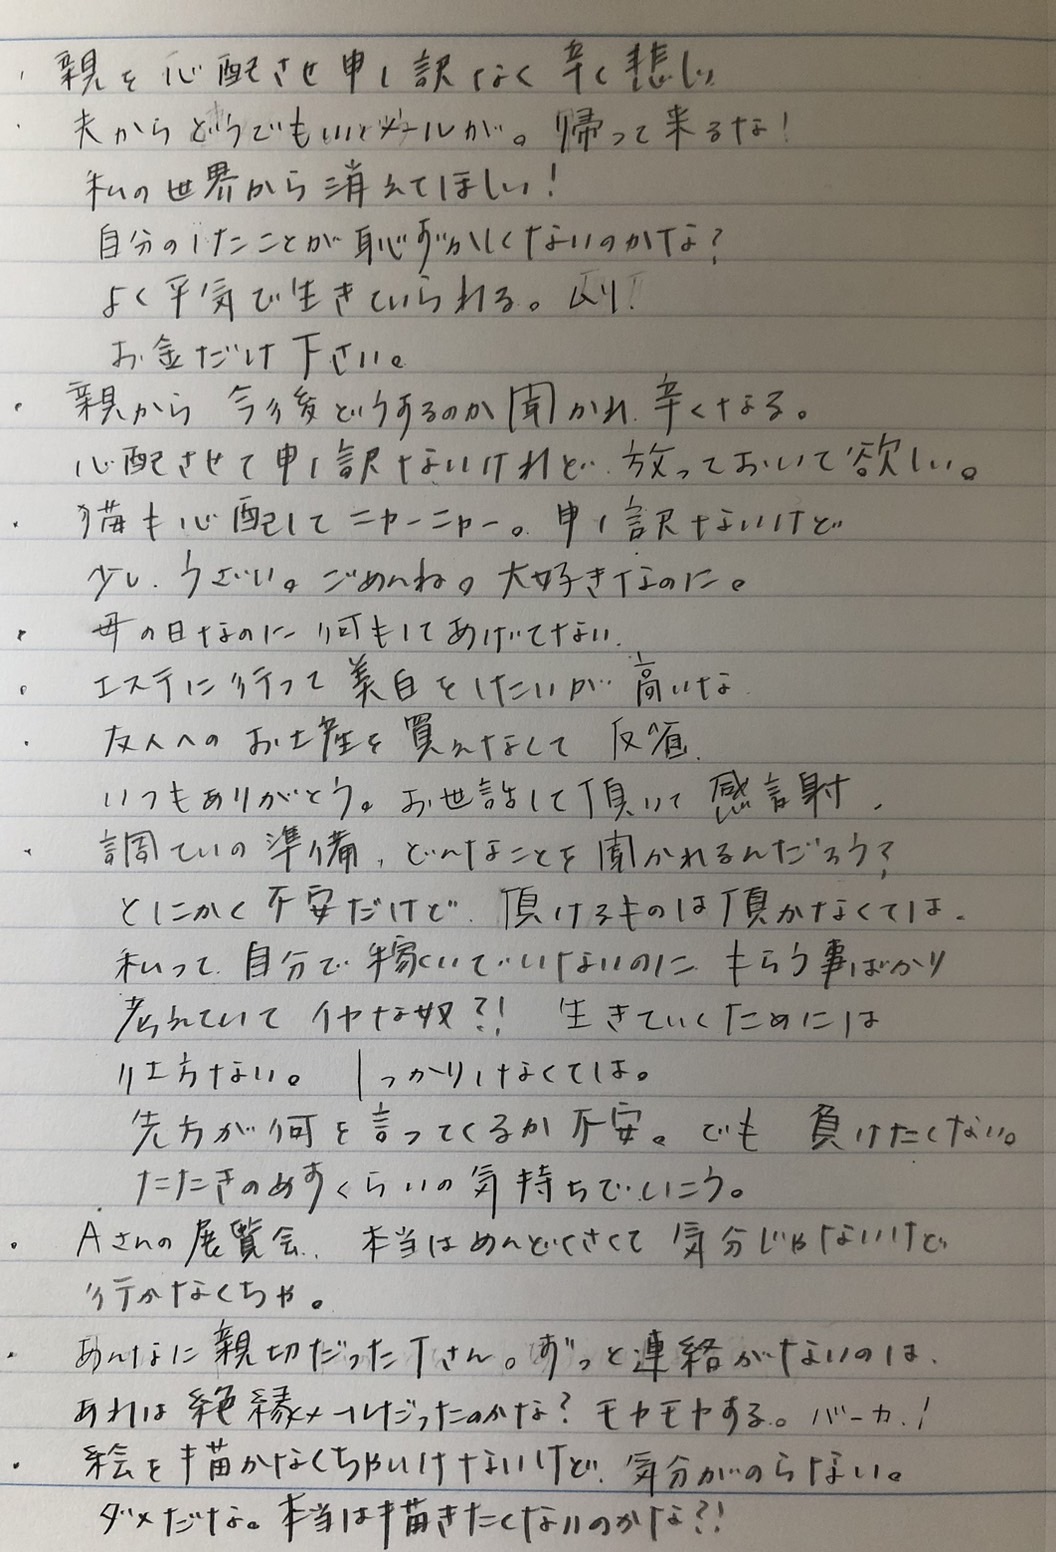 ・親を心配させ申し訳なく辛く悲しい
・夫からどうでもいいメールが。帰って来るな!
私の世界から消えてほしい!
自分のしたことが恥ずかしくないのかな?
よく平気で生きていられる。ムリ!
お金だけ下さい。
・親から今後どうするのか聞かれ辛くなる。
心配させて申し訳ないけれど、放っておいて欲しい。
・猫も心配してニャーニャー。申し訳ないけど
少し、うざい。ごめんね。大好きなのに。
・母の日なのに何もしてあげてない。
・エステに行って美白をしたいが高いな
・友人へのお土産を買えなくて反省。
いつもありがとう。お世話して頂いて感謝。
・調ていの準備、どんなことを聞かれるんだろう?
とにかく不安だけど、頂けるものは頂かなくては。
私って、自分で稼いでいないのにもらう事ばかり
考えていてイヤな奴?! 生きていくためには
仕方ない。 しっかりしなくては。
先方が何を言ってくるか不安。でも 負けたくない。
たたきのめすくらいの気持ちでいこう。
・Aさんの展覧会、本当はめんどくさくて気分じゃないけど
行かなくちゃ。
・あんなに親切だったTさん。ずっと連絡がないのは、
あれは絶縁メールだったのかな?モヤモヤする。バーカ!
・絵を描かなくちゃいけないけど、気分がのらない。
ダメだな。本当は描きたくないのかな?!